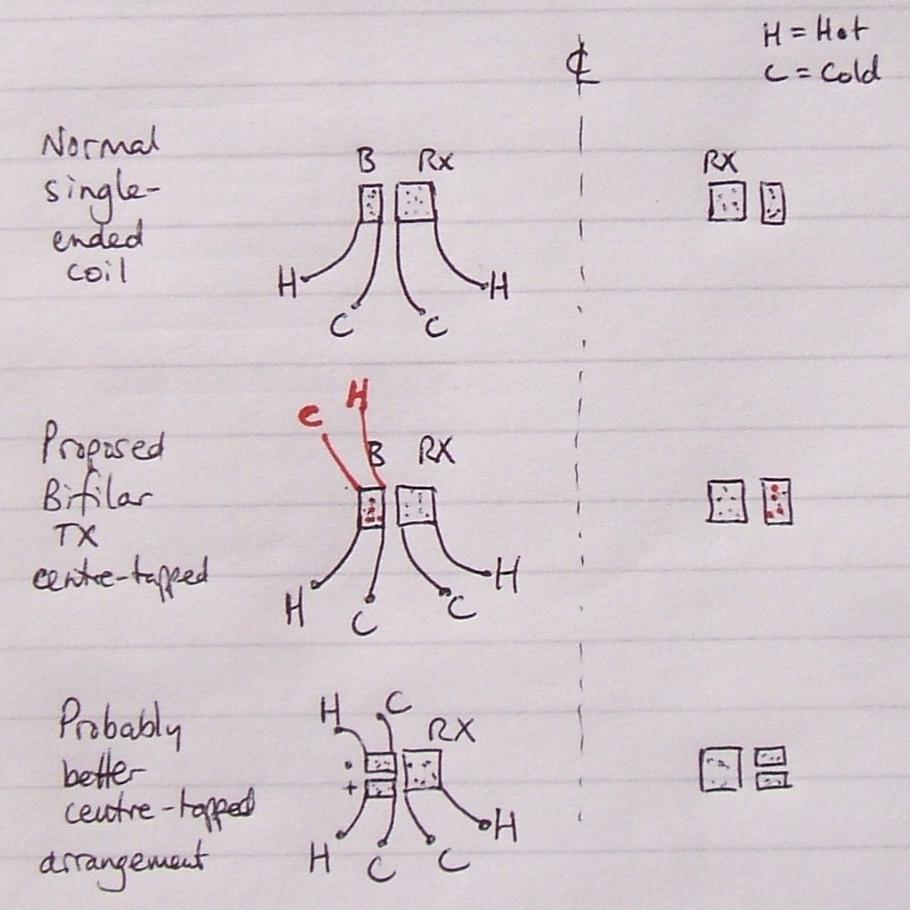 ℄
H = Hot
C = Cold
Normal
single-
ended
coil
B RX
RX
H H
C C
C H
Proposed
Bifilar
TX
centre-tapped
B RX
H C C H
Probably
better
centre-tapped
arrangement
H C
RX
•
+
H C C H